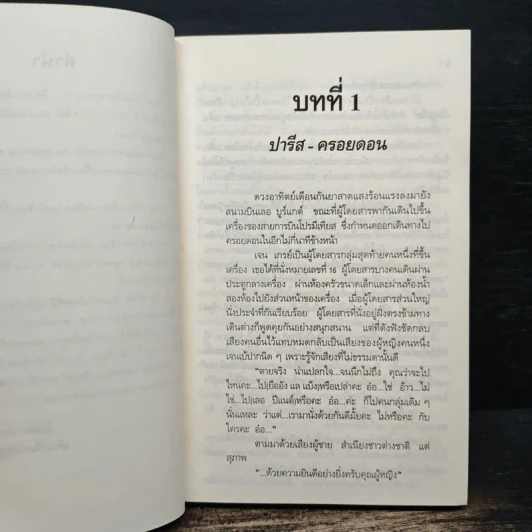 คำนำ
บทที่ 1
ปารีส - ครอยดอน
ดวงอาทิตย์เดือนกันยาสาดแสงร้อนแรงลงมายัง
สนามบินเลอ บูร์แกต์ ขณะที่ผู้โดยสารพากันเดินไปขึ้น
เครื่องของสายการบินโปรมีเทียส ซึ่งกำหนดออกเดินทางไป
ครอยดอนในอีกไม่กี่นาทีข้างหน้า
เจน เกรย์เป็นผู้โดยสารกลุ่มสุดท้ายคนหนึ่งที่ขึ้น
เครื่อง เธอได้ที่นั่งหมายเลขที่ 16 ผู้โดยสารบางคนเดินผ่าน
ประตูกลางเครื่อง ผ่านห้องครัวขนาดเล็กและผ่านห้องน้ำ
สองห้องไปยังส่วนหน้าของเครื่อง เมื่อผู้โดยสารส่วนใหญ่
นั่งประจำที่กันเรียบร้อย ผู้โดยสารที่นั่งอยู่ฝั่งตรงข้ามทาง
เดินต่างก็พูดคุยกันอย่างสนุกสนาน แต่ที่ดังฟังชัดกลบ
เสียงคนอื่นไว้แทบหมดกลับเป็นเสียงของผู้หญิงคนหนึ่ง
เจนเบ้ปากนิด ๆ เพราะรู้จักเสียงที่ไม่ธรรมดานั้นดี
"ตายจริง น่าแปลกใจ...จนนึกไม่ถึง คุณว่าจะไป
ไหนคะ...ไป(ยืออัง แล แบ็ง)หรือเปล่าคะ อ๋อ...ใช่ อ้าว...ไม่
ใช่...ไป(เลอ ปีแนต์)หรือคะ อ๋อ...ค่ะ ก็ไปคนกลุ่มเดิม ๆ
นั่นแหละ ว่าแต่...เรามานั่งด้วยกันดีมั้ยคะ ไม่หรือคะ กับ
ใครคะ อ๋อ..."
ตามมาด้วยเสียงผู้ชาย สำเนียงชาวต่างชาติ แต่
สุภาพ
"...ด้วยความยินดีอย่างยิ่งครับคุณผู้หญิง"